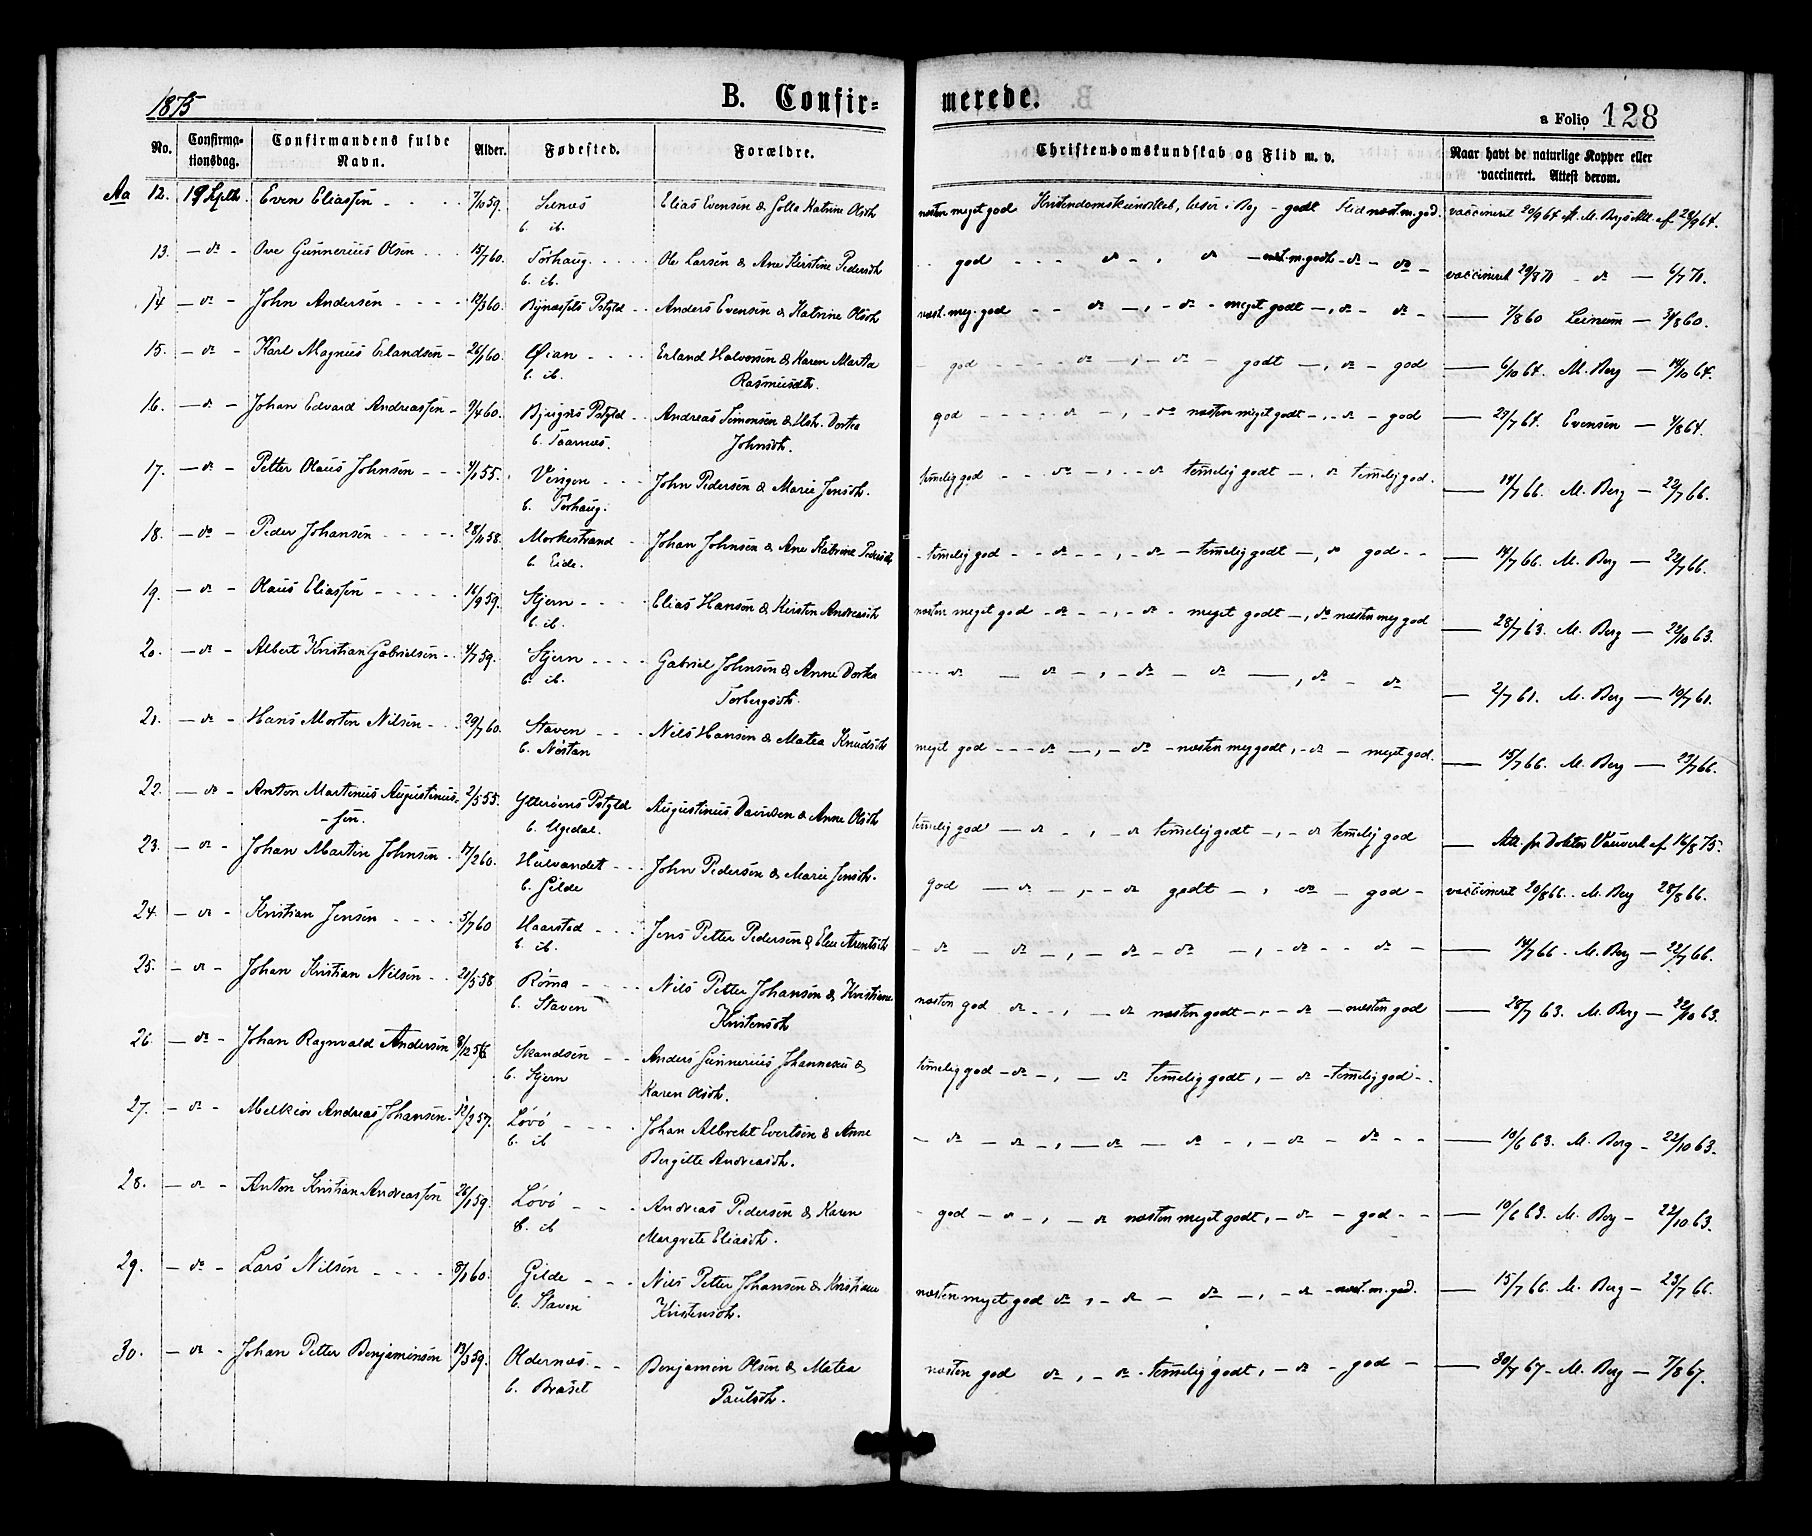 1875
B. Confir-
merede.
a Folio 128
No.
Confirma-
tionsdag.
Confirmandens fulde
Navn.
Alder.
Fødested.
Forældre.
Christendomskundskab og Flid m. v.
Naar havt de naturlige Kopper eller
vaccineret. Attest derom.
Aa 12. 19 Septb. Even Eliassen 7/10 59. Elias Evensen &
b. ib.
næsten meget god Kristendomskundskab, læser i Bog - godt Flid næst. m. god. vaccineret 20/9 64 Att. M. Bergs Att. af 28/9 64.
13. - do - Ove Gunnerius Olsen 15/7 60. Tørhaug Ole Larsen & Ane Kirstine Pedersdt.
b. ib.
god - do - , do - næst. m. godt - do - do - vaccineret 29/8 70 - do - 6/7 70.
14 - do - John Andersen 12/3 60. Bynæssets Pstgld Anders Evensen & Katrine Olsdt.
næst. meg. god - do - , - do - meget godt - , do - do - 7/8 60 Leinum - 31/8 60.
15. - do - Karl Magnus Erlandsen - 26/1 60. Øian Erland Halvorsen & Karen Marta
b. ib. Rasmusdt.
god - do - , - do - godt - , do - god 6/10 64. M. Berg - 14/10 64.
16. - do - Johan Edvard Andreassen - 9/4 60. Bjugns Pstgld Andreas Simonsen & Dortea
b. Taarnes. Johnsdt.
god - do - , - do næsten meget godt - , - do - god 27/7 64. Evensen - 4/8 64.
17. - do - Petter Olaus Johnsen 4/1 55. Veigen John Pedersen & Marie Jensdt.
b. Tørhaug.
temelig god - do - , - do temelig godt - , do temelig god. 14/7 66. M. Berg - 22/7 66.
18. - do - Peder Johansen 28/11 58. Morkestrand Johan Johnsen & Ane Katrine Pedersdt
b. Eide.
temelig god - do - , - do - temelig godt - , do god 14/7 66. M. Berg - 22/7 66.
19. - do - Olaus Eliassen 16/9 59. Stjern Elias Hansen & Kirsten Andreasdt
b. ib.
næsten meget god - do - , - do - meget godt - , do næsten meg god 28/7 63. M. Berg - 22/10 63.
20. - do - Albert Kristian Gabrielsen 4/7 59. Stjern Gabriel Johnsen & Anne Dorka
b. ib. Torbergsdt.
do - do - , - do - do - , do - do 2/7 61. M. Berg - 10/7 61.
21. - do - Hans Morten Nilsen 29/7 60. Staven Nils Hansen & Matea Knudsdt
b. Nøstan
meget god - do - , - do - næsten meg godt, - do - meget god. 15/7 66. M. Berg - 23/7 66.
22. - do - Anton Martinus Augustinus- 2/5 55. Ytterøens Pstgld Augustinus Davidsen & Anne Olsdt
-sen. b. Ugedal.
temelig god - do - , - do temelig godt - , - do temelig god - Att. fr Doktor Vauvert af 16/8 75.
23. - do - Johan Martin Johnsen 17/2 60. Hulvandet John Pedersen & Marie Jensdt.
b. Gilde
god - do - , - do godt - , do - god - vaccineret 20/8 66. M. Berg 28/8 66.
24. - do - Kristian Jensen 5/7 60 Haarstad Jens Petter Pedersen & Elen Arentsdt
b. ib.
- do - do - , - do - do - , - do - do - 14/7 66 - M. Berg - 22/7 66.
25. - do - Johan Kristian Nilsen 21/5 58 Røma Nils Petter Johansen & Kristiane
b. Staven Kristensdt
næsten god do - , - do næsten godt - , - do - næsten god 28/7 63. M. Berg - 22/10 63.
26. - do - Johan Ragnvald Andersen 8/12 56 Skandsen Anders Gunnerius Johannesen &
b. Stjern Karen Olsdt.
temelig god - do - , - do temelig godt, - do - temelig god
27. - do - Melkior Andreas Johansen 12/2 57. Løvø Johan Albrekt Evertsen & Anne
b. ib Bergitte Andreasdt.
- do - do - , - do - do - , - do - do - 10/6 63. M. Berg - 22/10 63.
28. - do - Anton Kristian Andreassen 26/1 59. Løvø Andreas Pedersen & Karen
b. ib Margrete Eliasdt.
god - do - , - do næsten meget godt, - do - god 10/6 63. M. Berg - 22/10 63.
29. - do - Lars Nilsen 8/1 60. Gilde Nils Petter Johansen & Kristiane
b. Staven Kristensdt.
næsten meget god do, - do - do - , - do - næst. m. god. 15/7 66. M. Berg - 23/7 66.
30. - do - Johan Petter Benjaminsen 13/3 59. Oldernæs Benjamin Olsen & Matea
b. Braset Paulsdt.
næsten god do, - do - temelig godt, - do - god - 30/7 67 - M. Berg - 7/8 67.